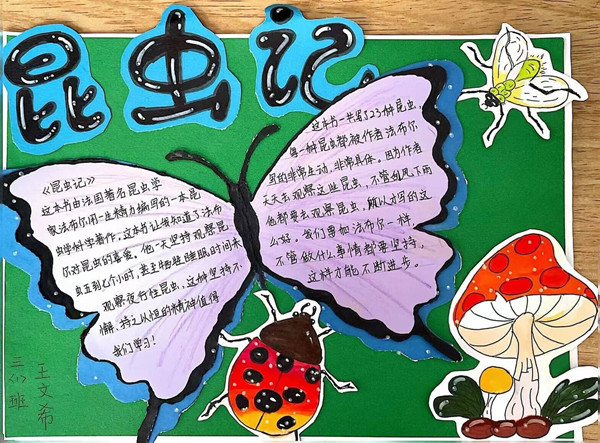 昆虫记
《昆虫记》
这本书由法国著名昆虫学
家法布尔用一生精力编写的一本昆
虫学科学著作。这本书让我知道了法布
尔对昆虫的喜爱，他一天坚持观察昆
虫五到七个小时，甚至牺牲睡眠时间来
观察夜行性昆虫，这种坚持不
懈、持之以恒的精神值得
我们学习！
这本书一共写了23种昆虫，
每一种昆虫都被作者法布尔
写的非常生动，非常具体，因为作者
天天去观察这些昆虫，不管刮风下雨
他都要去观察昆虫，所以才写的这
么好，我们要向法布尔一样
不管做什么事情都要坚持，
这样才能不断进步。
三(1)班
王文希